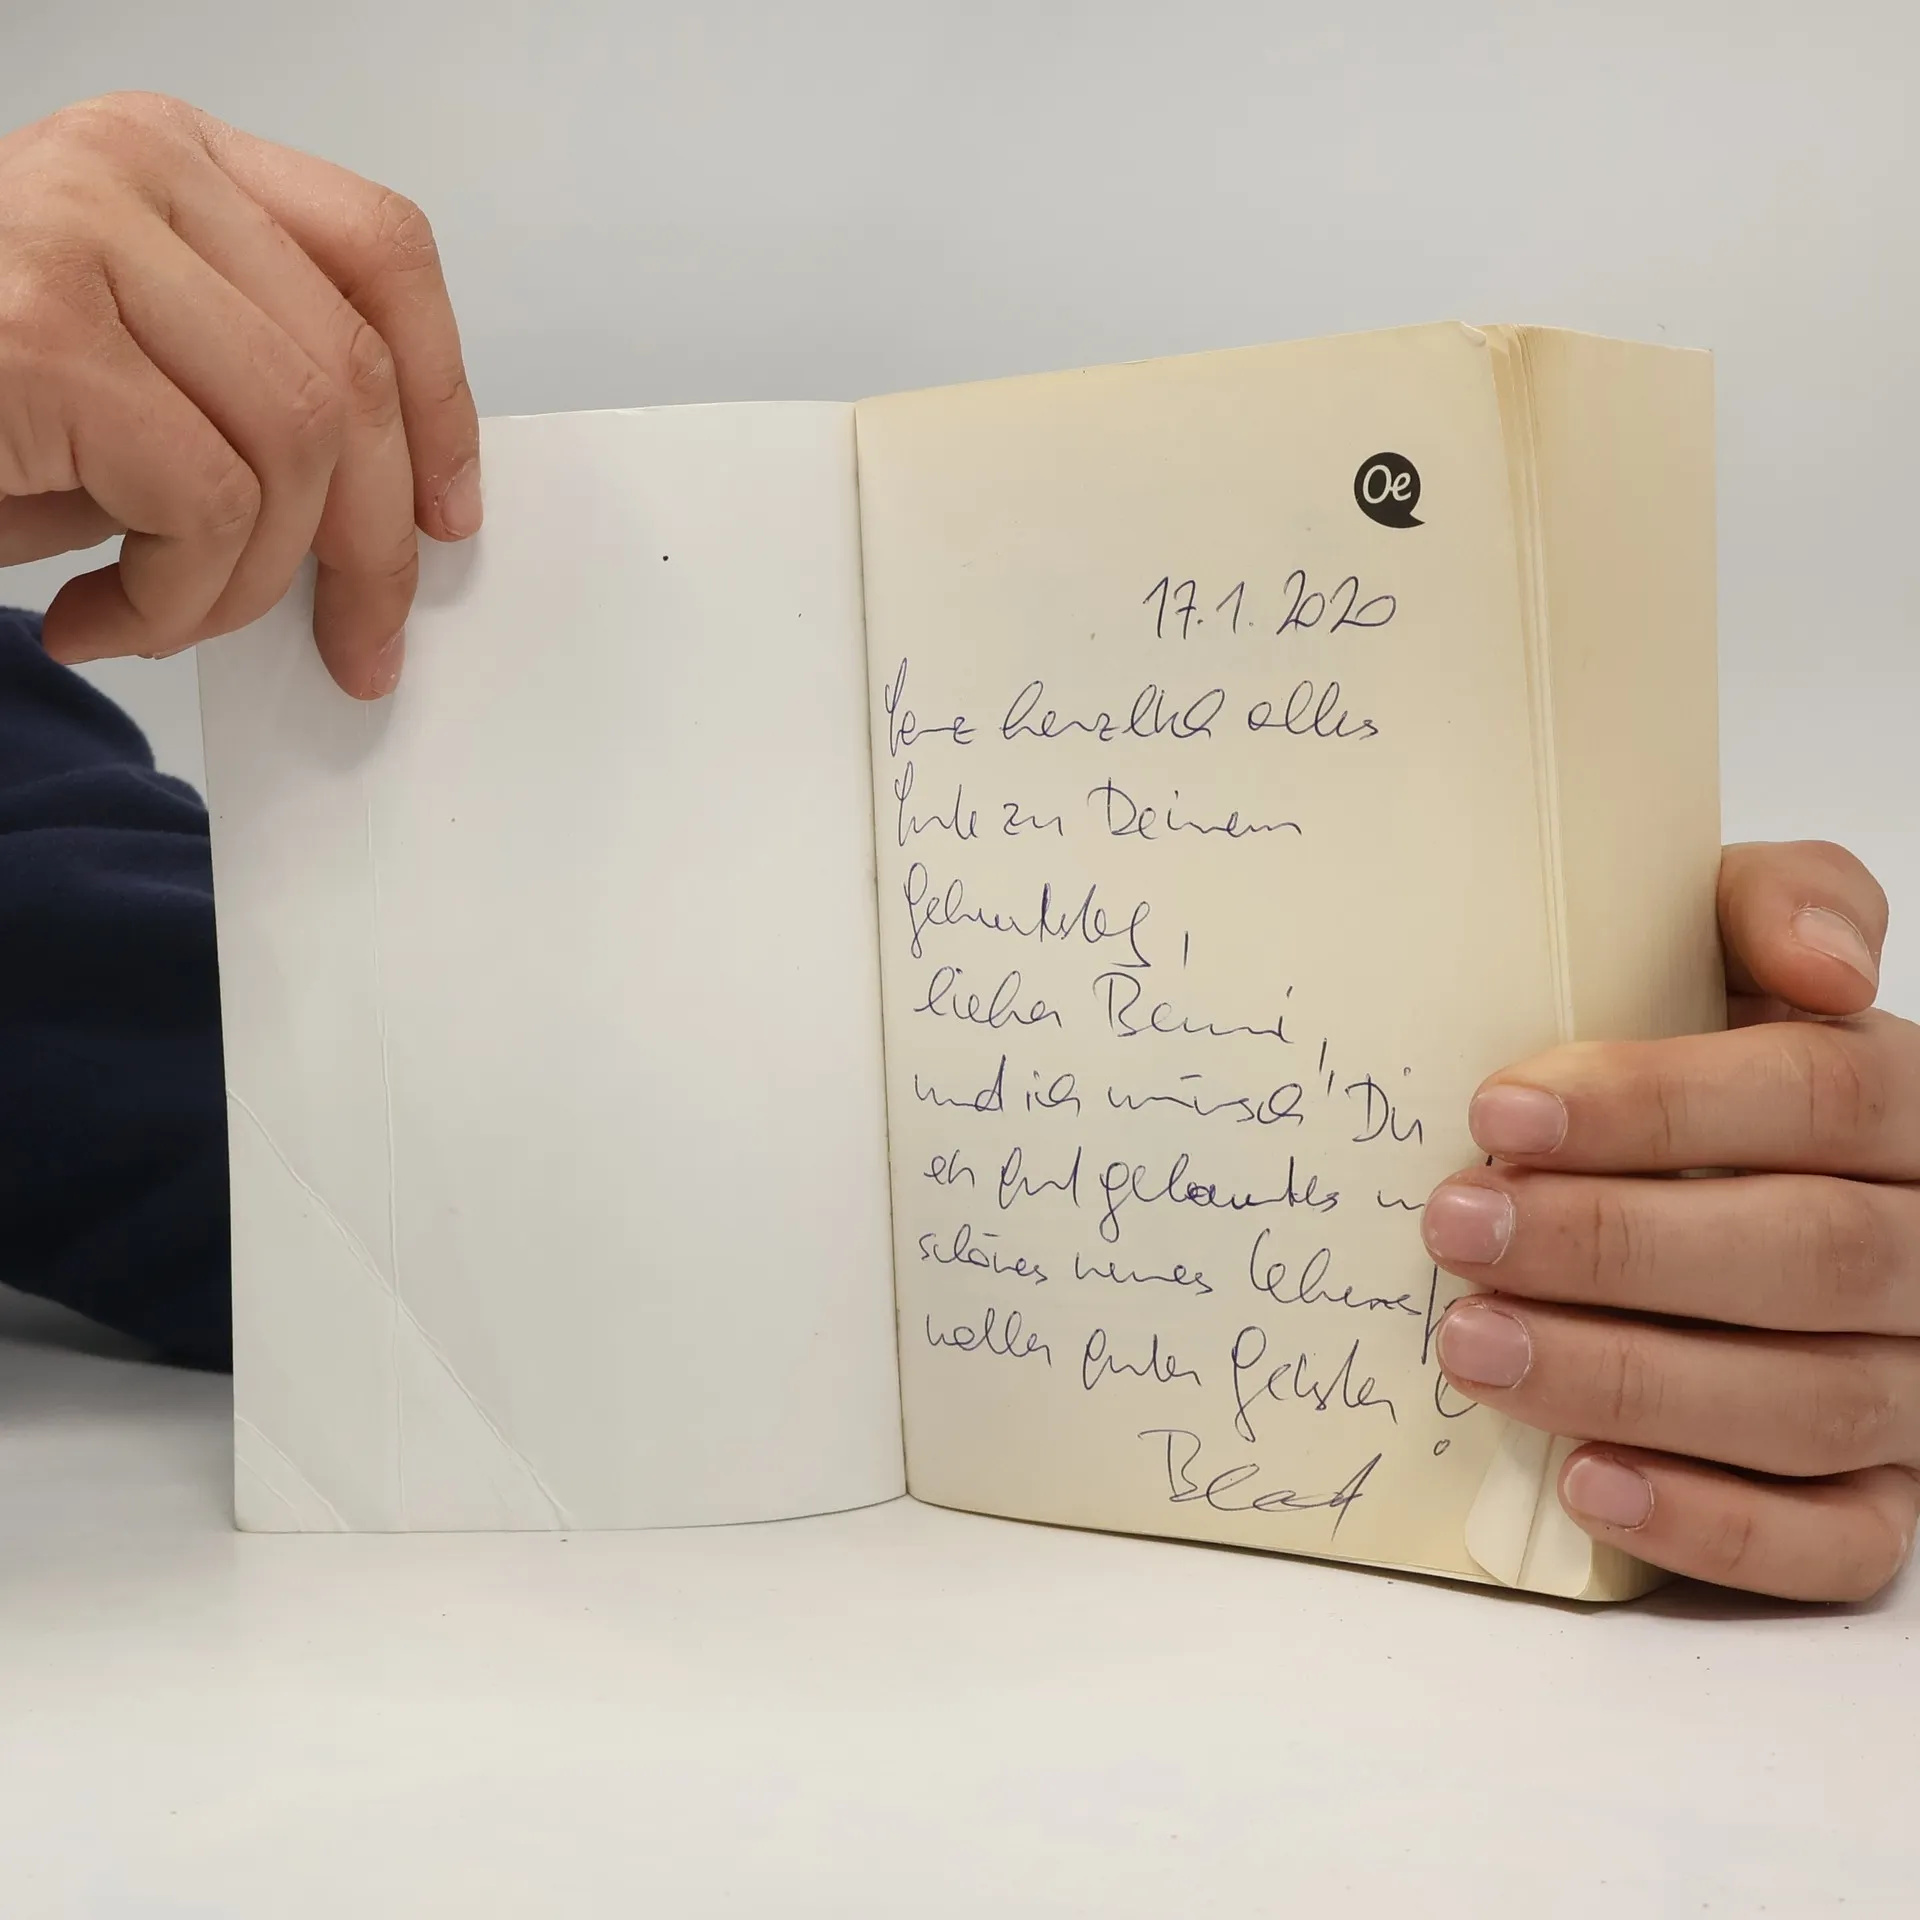 Oe
17.1.2020
Ganz herzlich alles
Gute zu Deinem
Geburtstag,
lieber Benni,
und ich wünsch' Dir
ein gut gelauntes
schönes neues Lebens
voller guter Geister
Beat